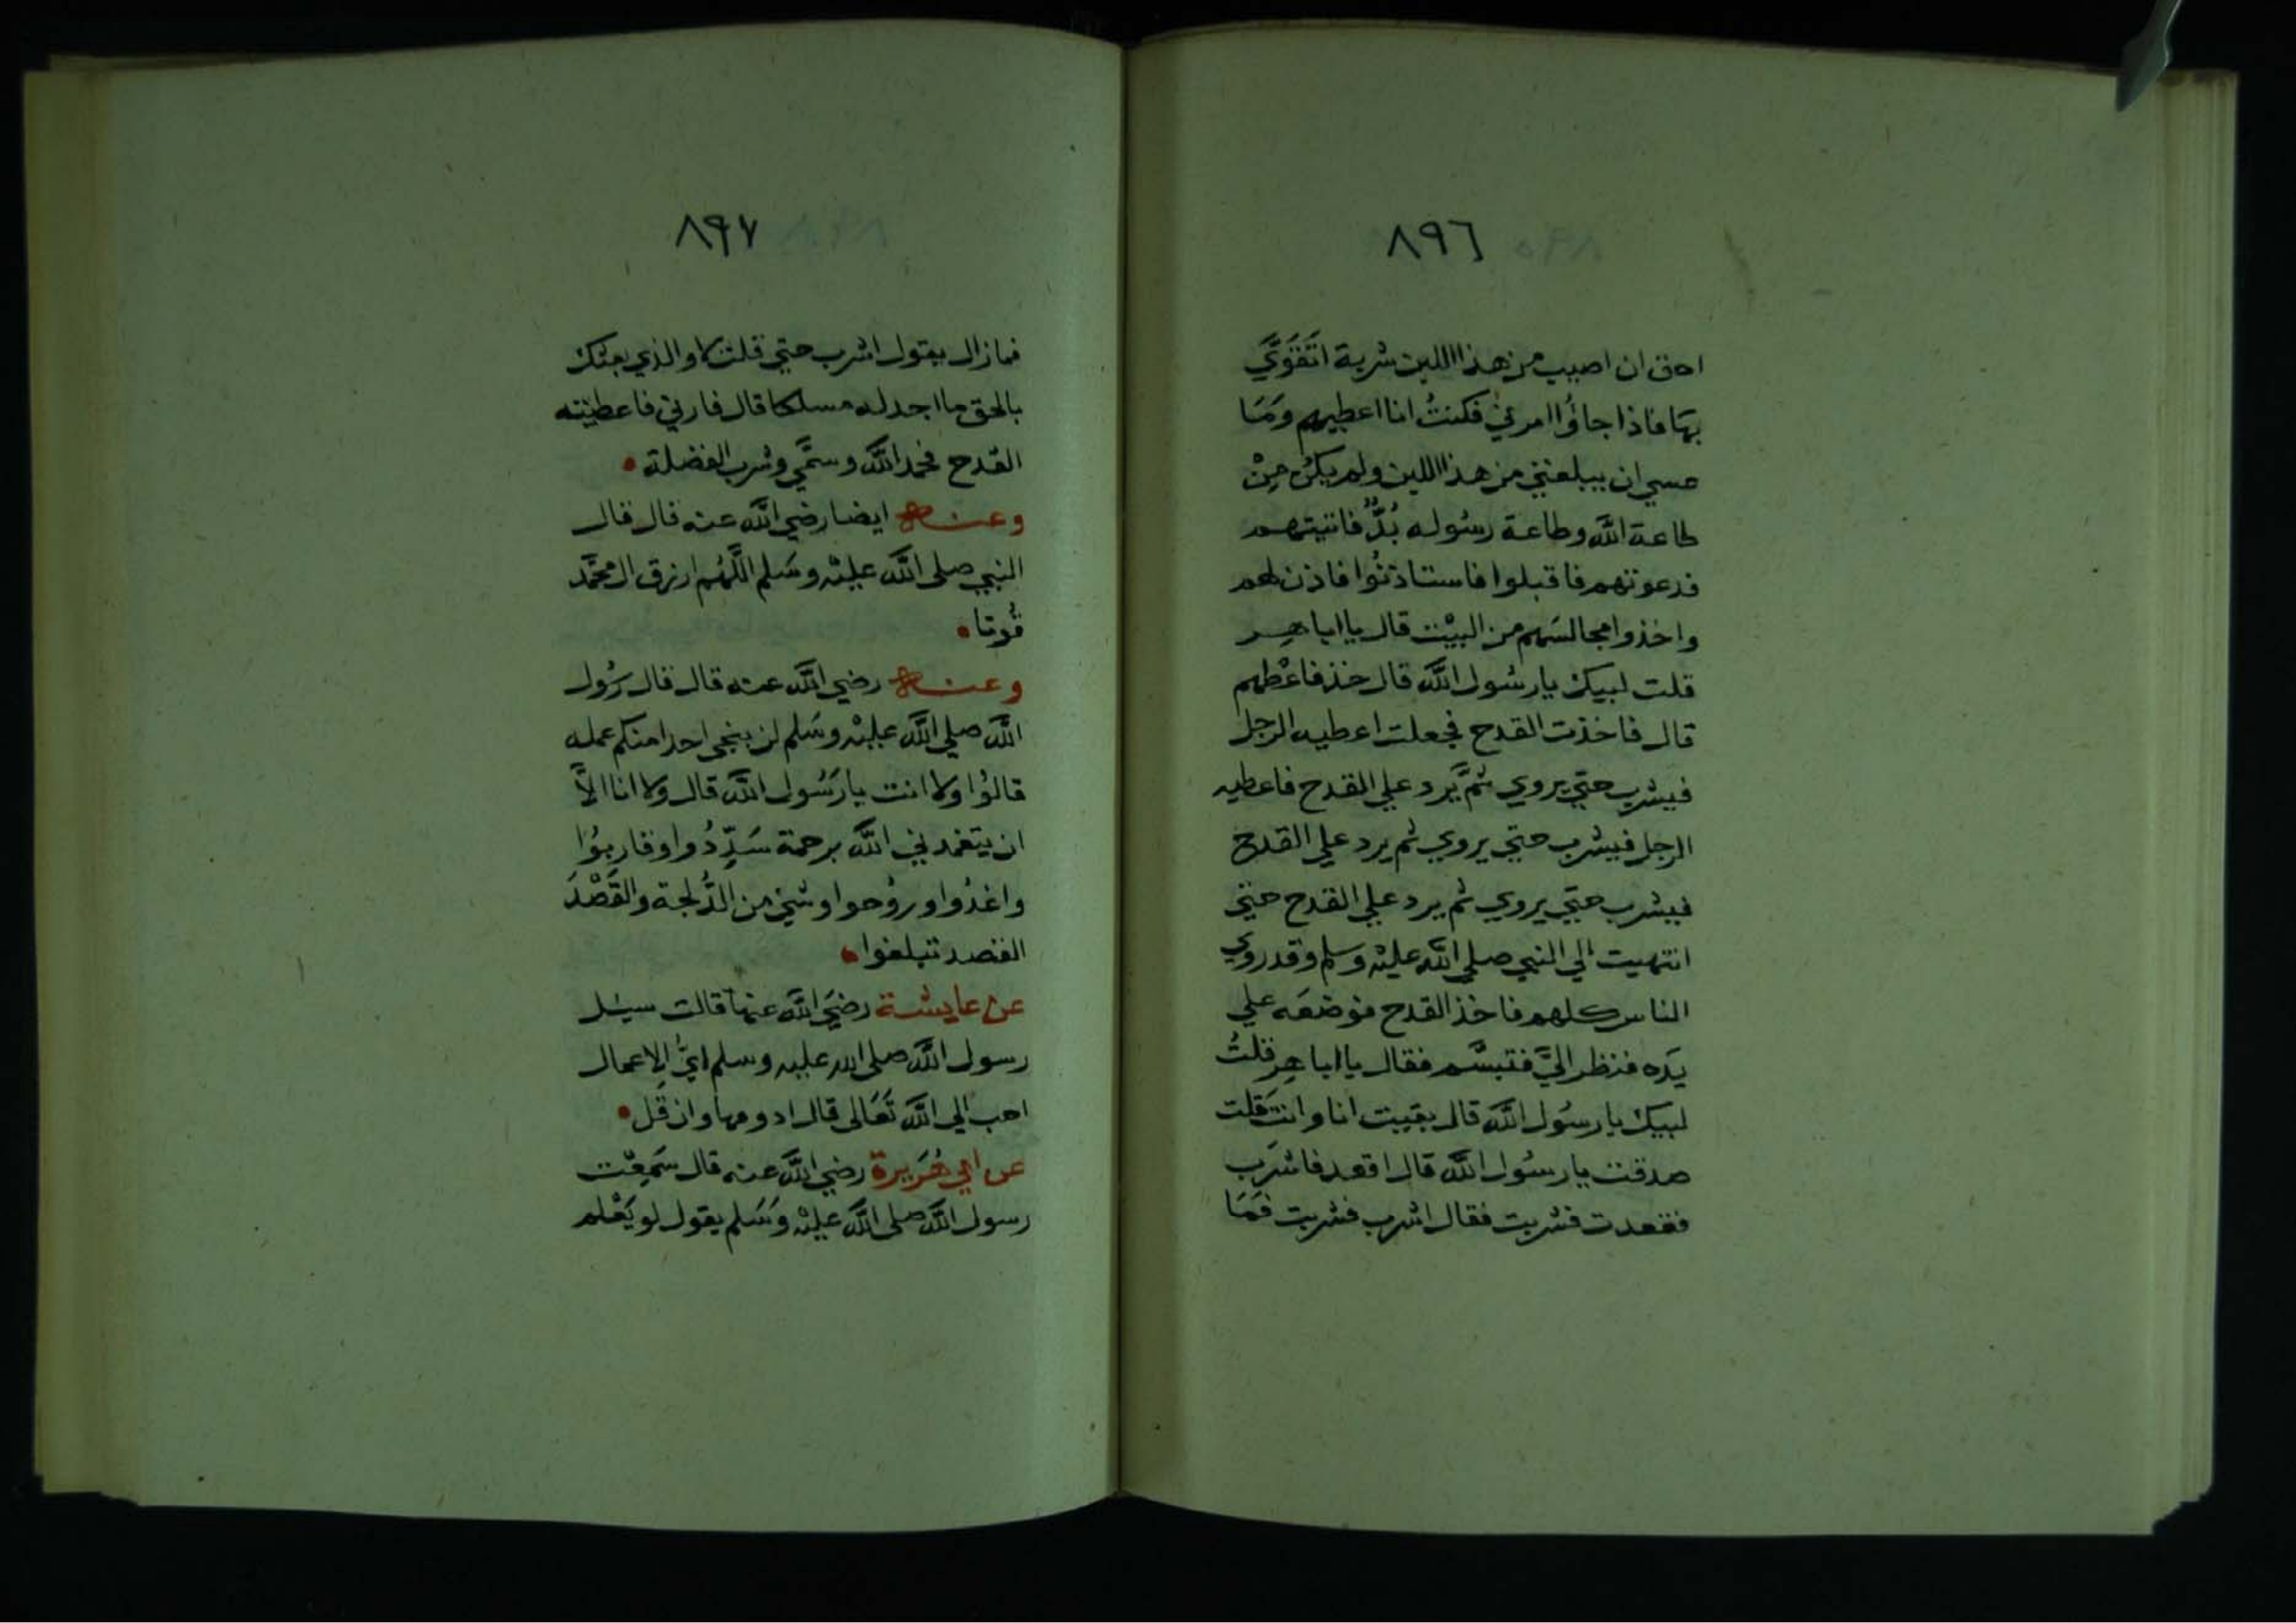 ٨٩٦
احق ان اصيب من هذا اللبن شربة اتَقَوَّي
بهَا فاذا جاؤُا امرني فكنتُ انا اعطيهم وَمَا
عسي ان يبلغني من هذا اللبن ولم يكن مِنْ
طاعة اللَّه وطاعة رسُوله بُدٌّ فاتيتهم
فدعوتهم فاقبلوا فاستاذنُوا فاذن لهم
واخذوا مجالسَهم من البيْت قال يا ابا هِر
قلت لبيك يا رسُول اللَّه قال خذ فاعْطهم
قال فاخذت القدح فجعلت اعطيه الرجل
فيشرب حتي يروي ثمَّ يرد علي القدح فاعطيه
الرجل فيشرب حتي يروي ثم يرد علي القدح
فيشرب حتي يروي ثم يرد علي القدح حتي
انتهيت الي النبي صلي اللَّه عليْه وسلم وقد روي
الناس كلهم فاخذ القدح فوضعَه علي
يَده فنظر اليَّ فتبسَّم فقال يا ابا هِر قلتُ
لبيك يا رسُول اللَّه قال بقيت انا وانت قَلت
صدقت يا رسُول اللَّه قال اقعد فاشرَب
فقعدت فشربت فقال اشرب فشربت فمَا
٨٩٧
فما زال يقول اشرب حتي قلت لا والذي بعثك
بالحق ما اجد له مسلكا قال فارني فاعطيْته
القدح فحمد اللَّه وسمَّي وشرب الفضلة •
وعنه ايضا رضي اللَّه عنه قال قال
النبي صلى اللَّه عليْه وسَلم اللَّهُم ارزق ال محمَّد
قُوتا •
وعنه رضي اللَّه عنه قال قال رسُول
اللَّه صلي اللَّه عليْه وسَلم لن ينجى احدا منكم عمله
قالوُا ولا انت يا رَسُول اللَّه قال ولا انا الاَّ
ان يتغمدني اللَّه برحمة سَدِّدُوا وقاربوُا
واغدُوا وروُحوا وشئ من الدُّلجة والقَصْدَ
القصد تبلغوا •
عن عايشة رضيَ اللَّه عنهَا قالت سيُل
رسول اللَّه صلى الله عليه وسلم ايُّ الاعمال
احب الي اللَّه تَعَالى قال ادومها وان قَل •
عن ابي هُرَيرة رضي اللَّه عنه قال سَمِعْت
رسول اللَّه صلى اللَّه عليْه وسَلم يقول لو يَعْلم